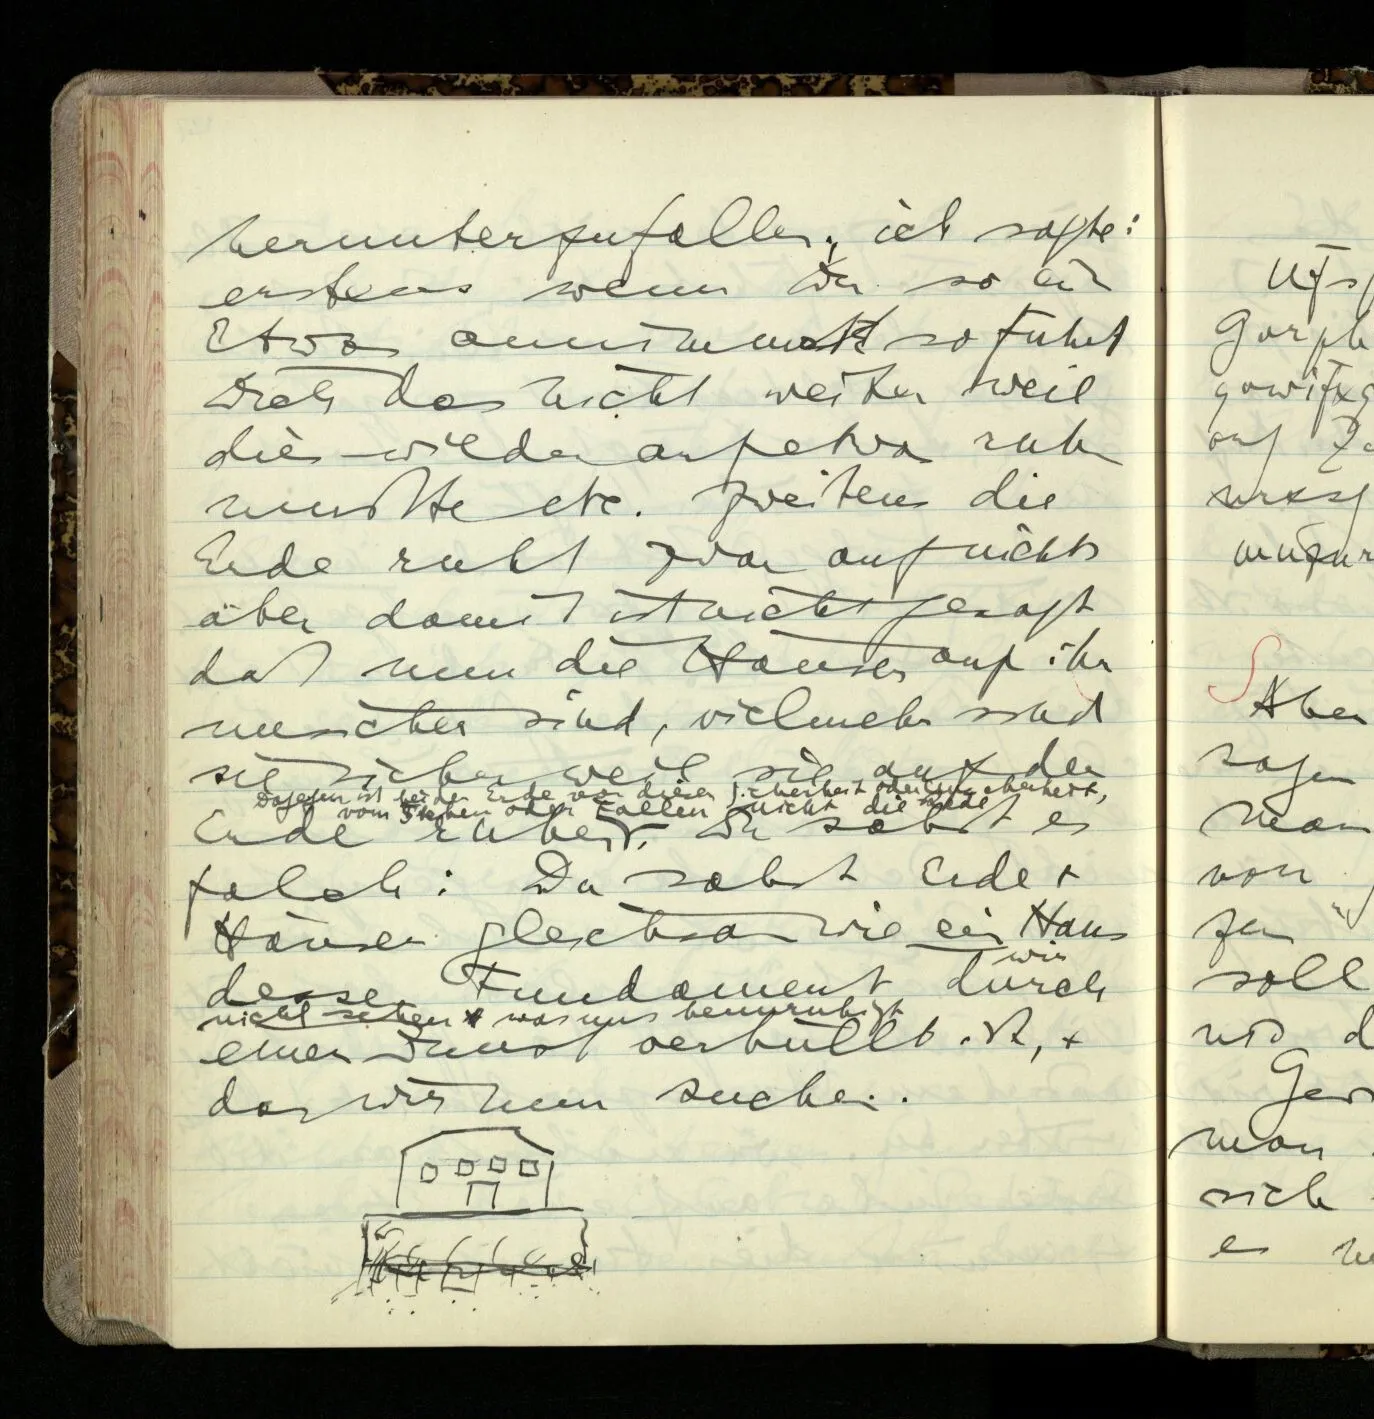 herunterzufallen; ich sagte:
erstens wenn Du so ein
Etwas annimmst so führt
Dich das nicht weiter weil
dies wieder auf etwas ruhn
musste etc. Zweitens die
Erde ruht zwar auf nichts
aber damit ist nicht gesagt
daß nun die Häuser auf ihr
unsicher sind, vielmehr sind
sie sicher weil sie auf der
Dagegen ist bei der Erde von dieser Sicherheit oder Unsicherheit,
vom Stehen oder Fallen nicht die Rede
Erde ruhen. Du sahst es
falsch: Du sahst Erde +
Häuser gleichsam wie ein Haus
dessen Fundament durch
wir
nicht sehen + was uns beunruhigt
einen Dunst verhüllt ist, +
das wir nun suchen.
Aber
sagen
Man
von
zu
soll
man
sich